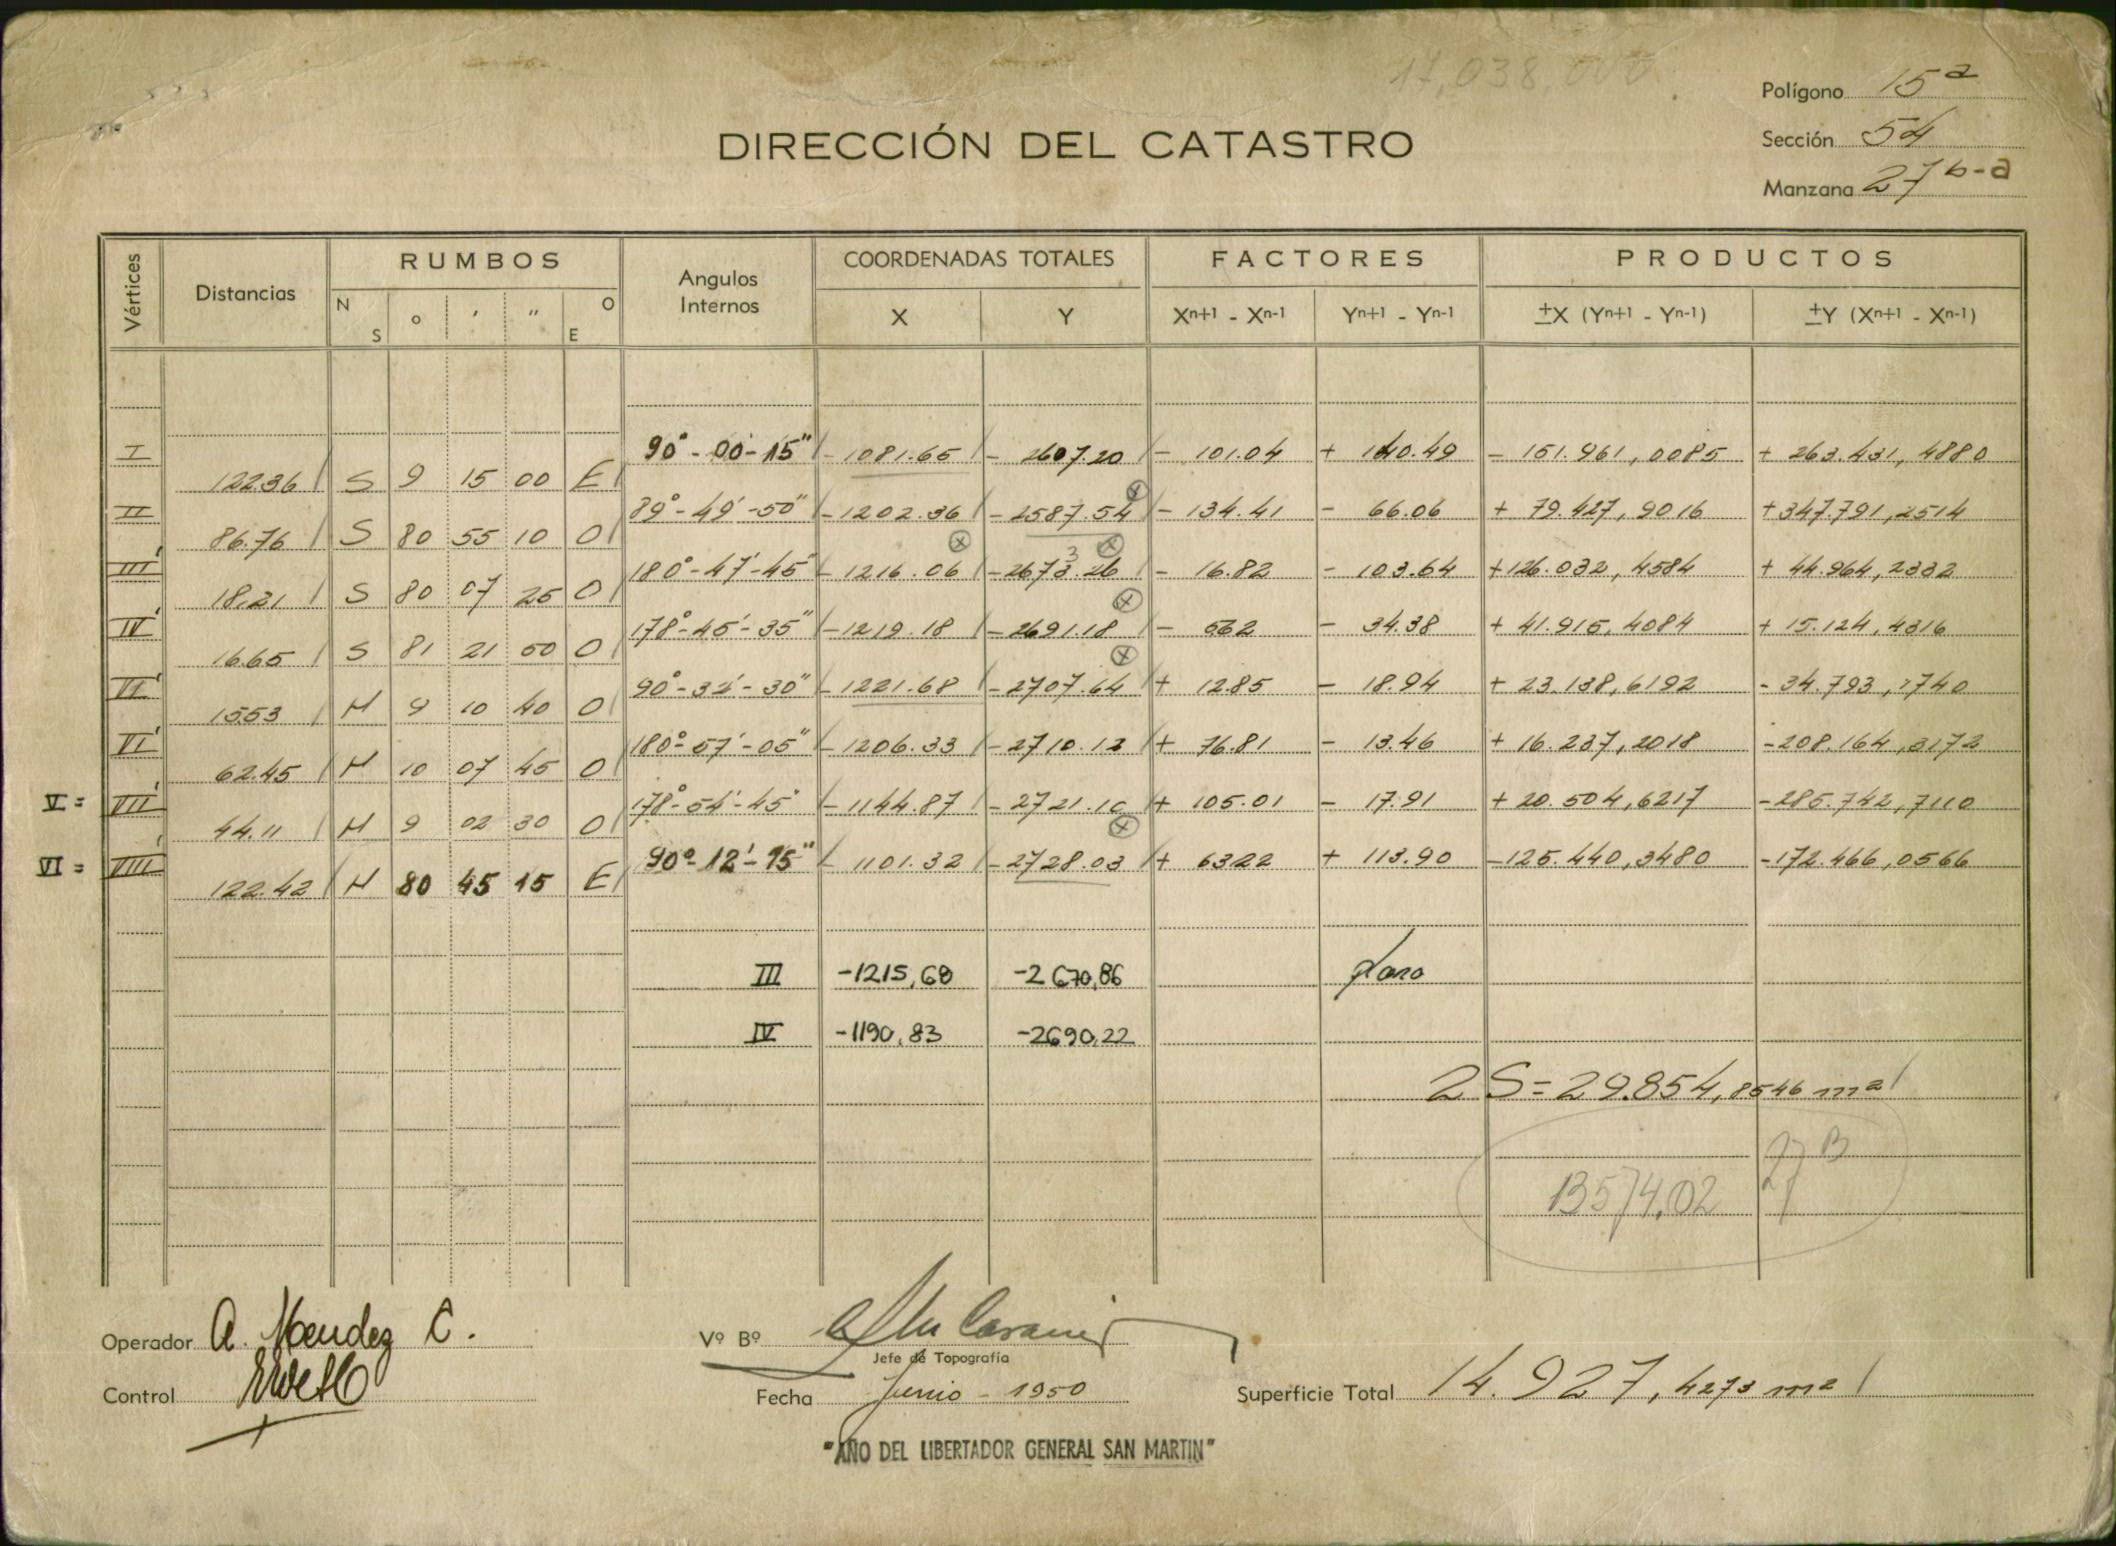 17,038,000
Polígono 15a
DIRECCIÓN DEL CATASTRO
Sección 54
Manzana 27 b-a
Vértices Distancias RUMBOS Angulos Internos COORDENADAS TOTALES FACTORES PRODUCTOS
N S ° ' " O E X Y Xn+1 - Xn-1 Yn+1 - Yn-1 ±X (Yn+1 - Yn-1) ±Y (Xn+1 - Xn-1)
I 90°-00'-15" - 1081.65 - 2607.20 - 101.04 + 140.49 - 151.961,0085 + 263.431,4880
122.36 S 9 15 00 E
II 89°-49'-50" - 1202.36 - 2587.54 - 134.41 - 66.06 + 79.427,9016 + 347.791,2514
86.76 S 80 55 10 O
III' 180°-47'-45" - 1216.06 - 2673.26 - 16.82 - 103.64 + 126.032,4584 + 44.964,2332
18.21 S 80 07 25 O
IV' 178°-45'-35" - 1219.18 - 2691.18 - 562 - 34.38 + 41.915,4084 + 15.124,4316
16.65 S 81 21 50 O
VI' 90°-32'-30" - 1221.68 - 2707.64 + 12.85 - 18.94 + 23.138,6192 - 34.793,1740
15.53 N 9 10 40 O
VI' 180°-57'-05" - 1206.33 - 2710.12 + 76.81 - 13.46 + 16.237,2018 - 208.164,3172
62.45 N 10 07 45 O
V = VII' 178°-54'-45" - 1144.87 - 2721.10 + 105.01 - 17.91 + 20.504,6217 - 285.742,7110
44.11 N 9 02 30 O
VI = VIII' 90°-12'-15" - 1101.32 - 2728.03 + 63.22 + 113.90 - 125.440,3480 - 172.466,0566
122.42 N 80 45 15 E
III -1215,68 -2670,86
IV -1190,83 -2690,22
2 S = 29.854,8546 m2
27 B
13574,02
Operador A. Mendez C.
Vº Bº
Jefe de Topografía
Control
Fecha Junio - 1950
Superficie Total 14.927,4273 m2
"AÑO DEL LIBERTADOR GENERAL SAN MARTIN"